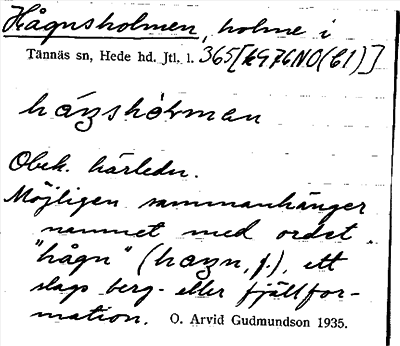 Hågnsholmen, holme i
Tännäs sn, Hede hd. Jtl. l. 365[kG76NO(C1)]
hågshòrman
Obek. härledn.
Möjligen sammanhänger
namnet med ordet
"hågn" (hazn, f.), ett
slags berg- eller fjällfor-
mation. O. Arvid Gudmundson 1935.